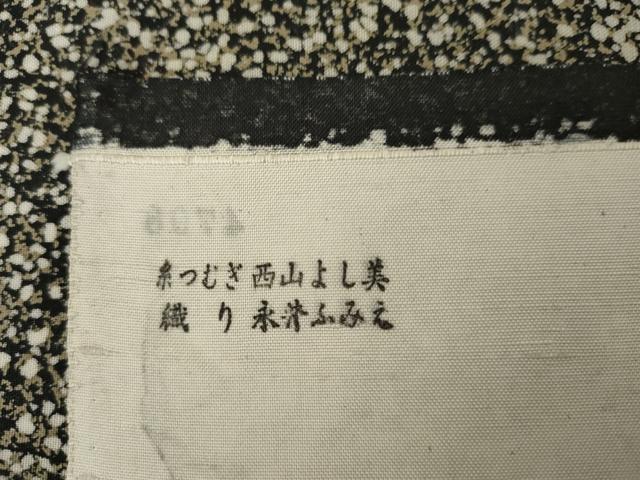 糸つむぎ 西山よし美
織り 永井ふみえ